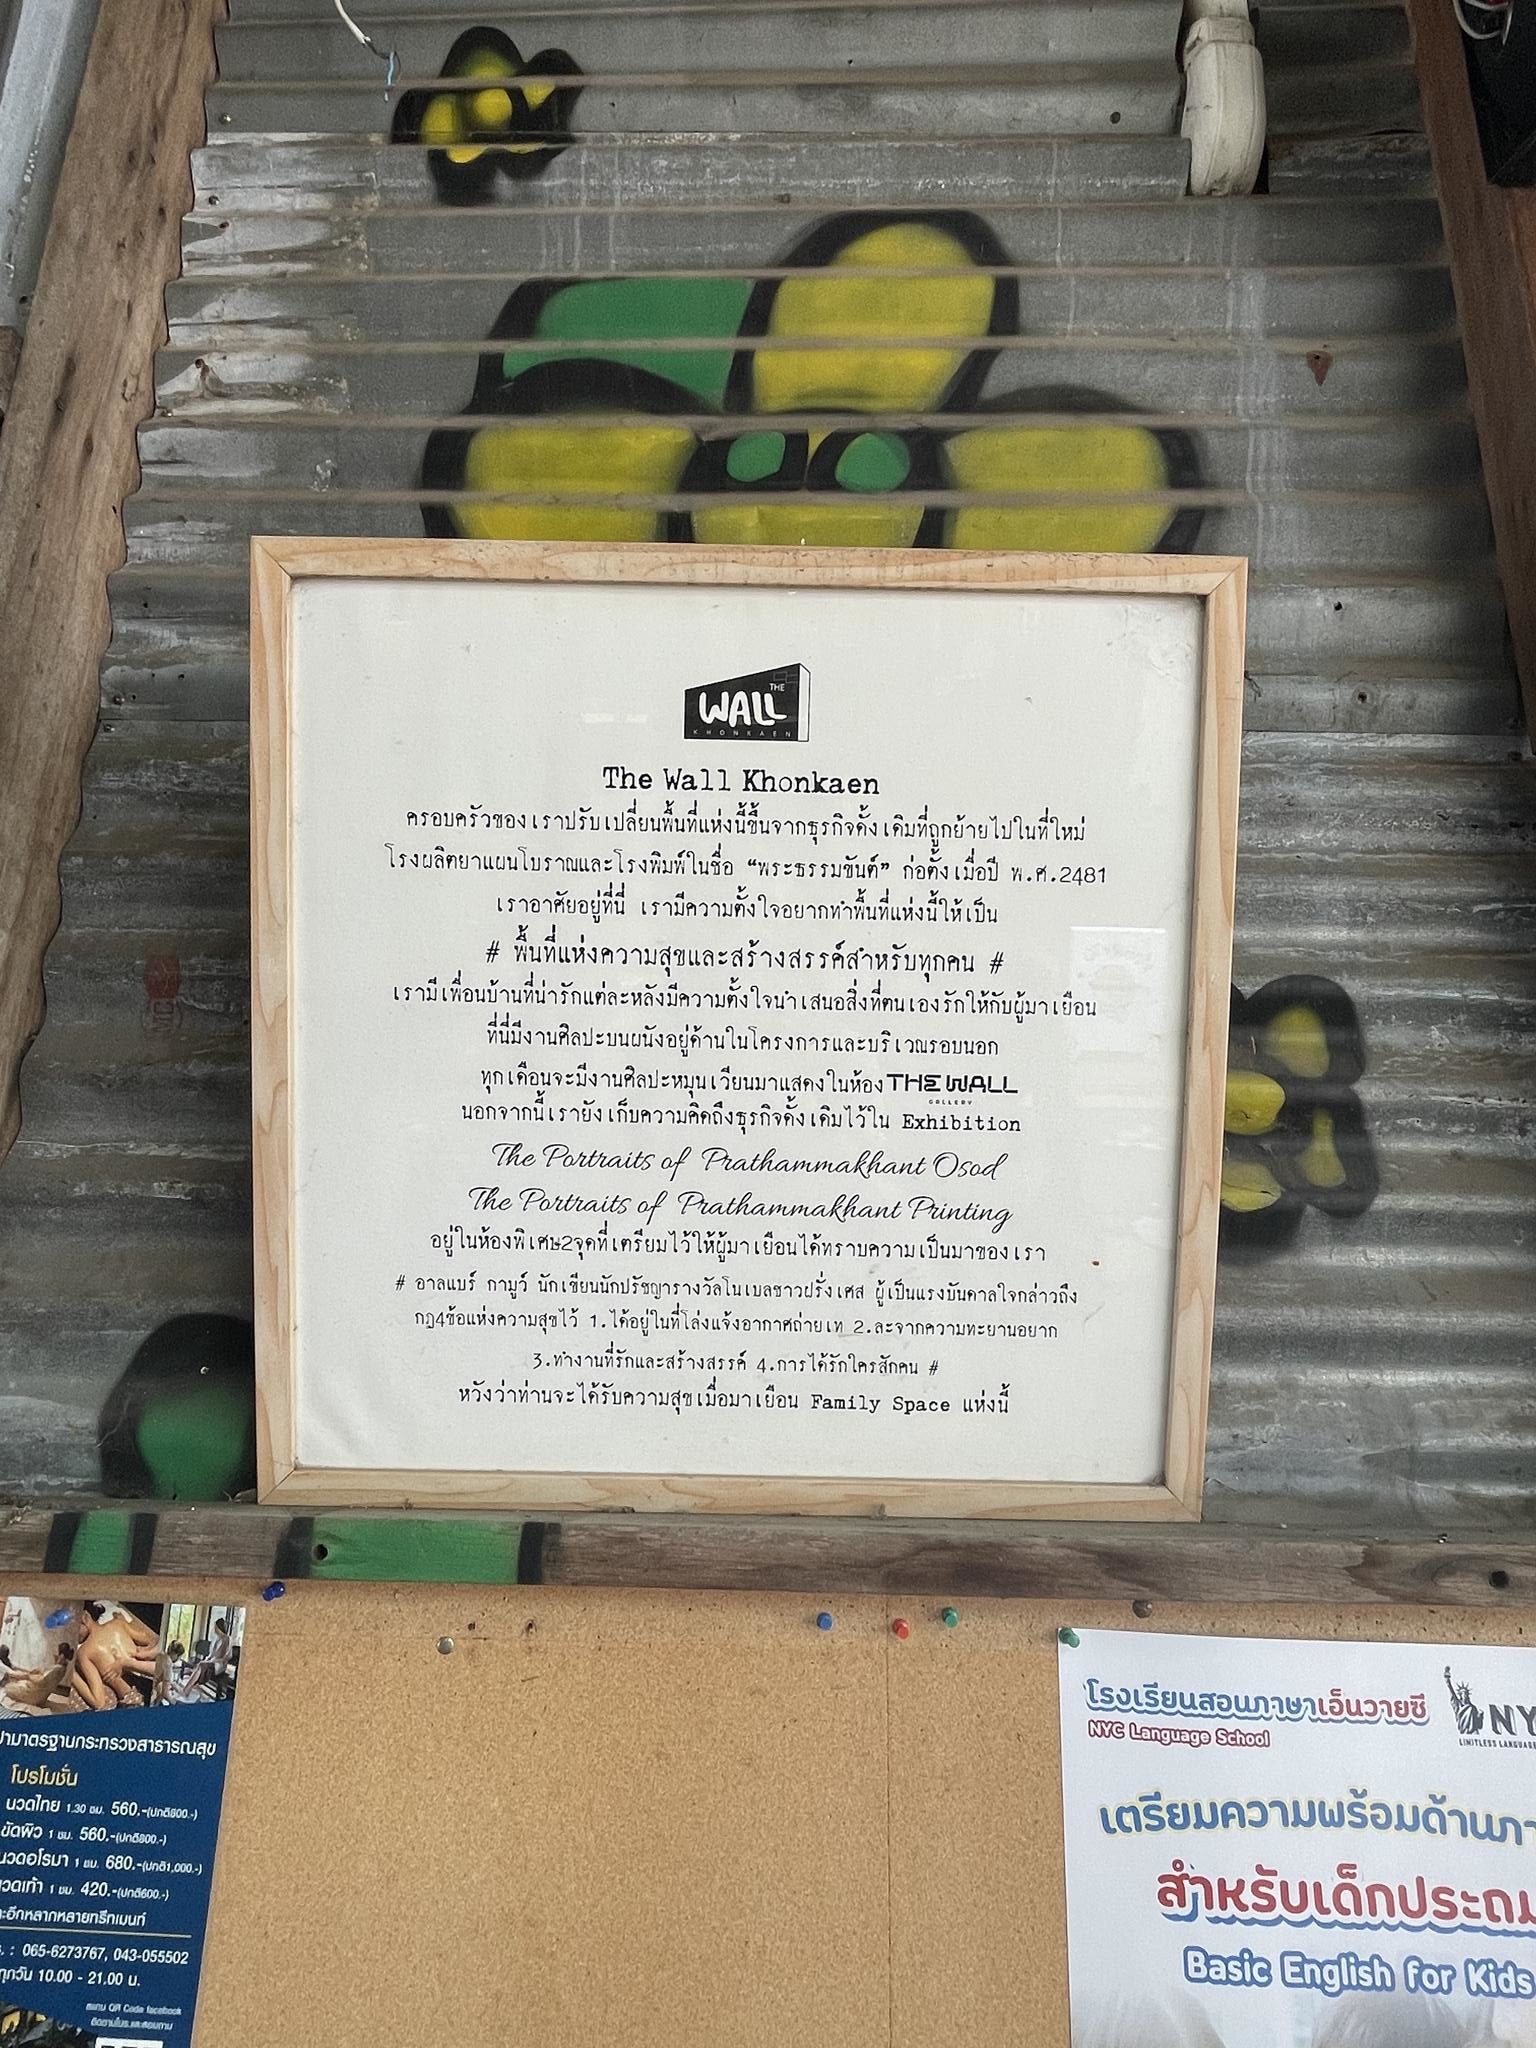 THE
WALL
KHONKAEN
The Wall Khonkaen
ครอบครัวของเราปรับเปลี่ยนพื้นที่แห่งนี้ขึ้นจากธุรกิจดั้งเดิมที่ถูกย้ายไปในที่ใหม่
โรงผลิตยาแผนโบราณและโรงพิมพ์ในชื่อ “พระธรรมขันต์” ก่อตั้งเมื่อปี พ.ศ.2481
เราอาศัยอยู่ที่นี่ เรามีความตั้งใจอยากทำพื้นที่แห่งนี้ให้เป็น
# พื้นที่แห่งความสุขและสร้างสรรค์สำหรับทุกคน #
เรามีเพื่อนบ้านที่น่ารักแต่ละหลังมีความตั้งใจนำเสนอสิ่งที่ตนเองรักให้กับผู้มาเยือน
ที่นี่มีงานศิลปะบนผนังอยู่ด้านในโครงการและบริเวณรอบนอก
ทุกเดือนจะมีงานศิลปะหมุนเวียนมาแสดงในห้อง THE WALL
GALLERY
นอกจากนี้เรายังเก็บความคิดถึงธุรกิจดั้งเดิมไว้ใน Exhibition
The Portraits of Prathammakhant Osod
The Portraits of Prathammakhant Printing
อยู่ในห้องพิเศษ2จุดที่เตรียมไว้ให้ผู้มาเยือนได้ทราบความเป็นมาของเรา
# อาลแบร์ กามูว์ นักเขียนนักปรัชญารางวัลโนเบลชาวฝรั่งเศส ผู้เป็นแรงบันดาลใจกล่าวถึง
กฎ4ข้อแห่งความสุขไว้ 1.ได้อยู่ในที่โล่งแจ้งอากาศถ่ายเท 2.ละจากความทะยานอยาก
3.ทำงานที่รักและสร้างสรรค์ 4.การได้รักใครสักคน #
หวังว่าท่านจะได้รับความสุขเมื่อมาเยือน Family Space แห่งนี้
มาตรฐานกระทรวงสาธารณสุข
โปรโมชั่น
นวดไทย 1.30 ชม. 560.-(ปกติ800.-)
ขัดผิว 1 ชม. 560.-(ปกติ800.-)
นวดอโรมา 1 ชม. 680.-(ปกติ1,000.-)
นวดเท้า 1 ชม. 420.-(ปกติ600.-)
อีกหลากหลายทรีทเมนท์
065-6273767, 043-055502
ทุกวัน 10.00 - 21.00 น.
สแกน QR Code facebook
โรงเรียนสอนภาษาเอ็นวายซี
NYC Language School
NY
LIMITLESS LANGUAGE
เตรียมความพร้อมด้านภา
สำหรับเด็กประถม
Basic English for Kids